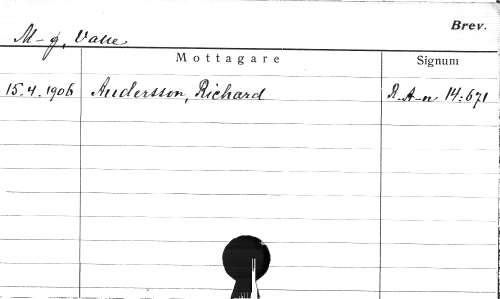 Brev.
M-g, Valle
Mottagare Signum
15.4.1906 Andersson, Richard R.A-n 14:671